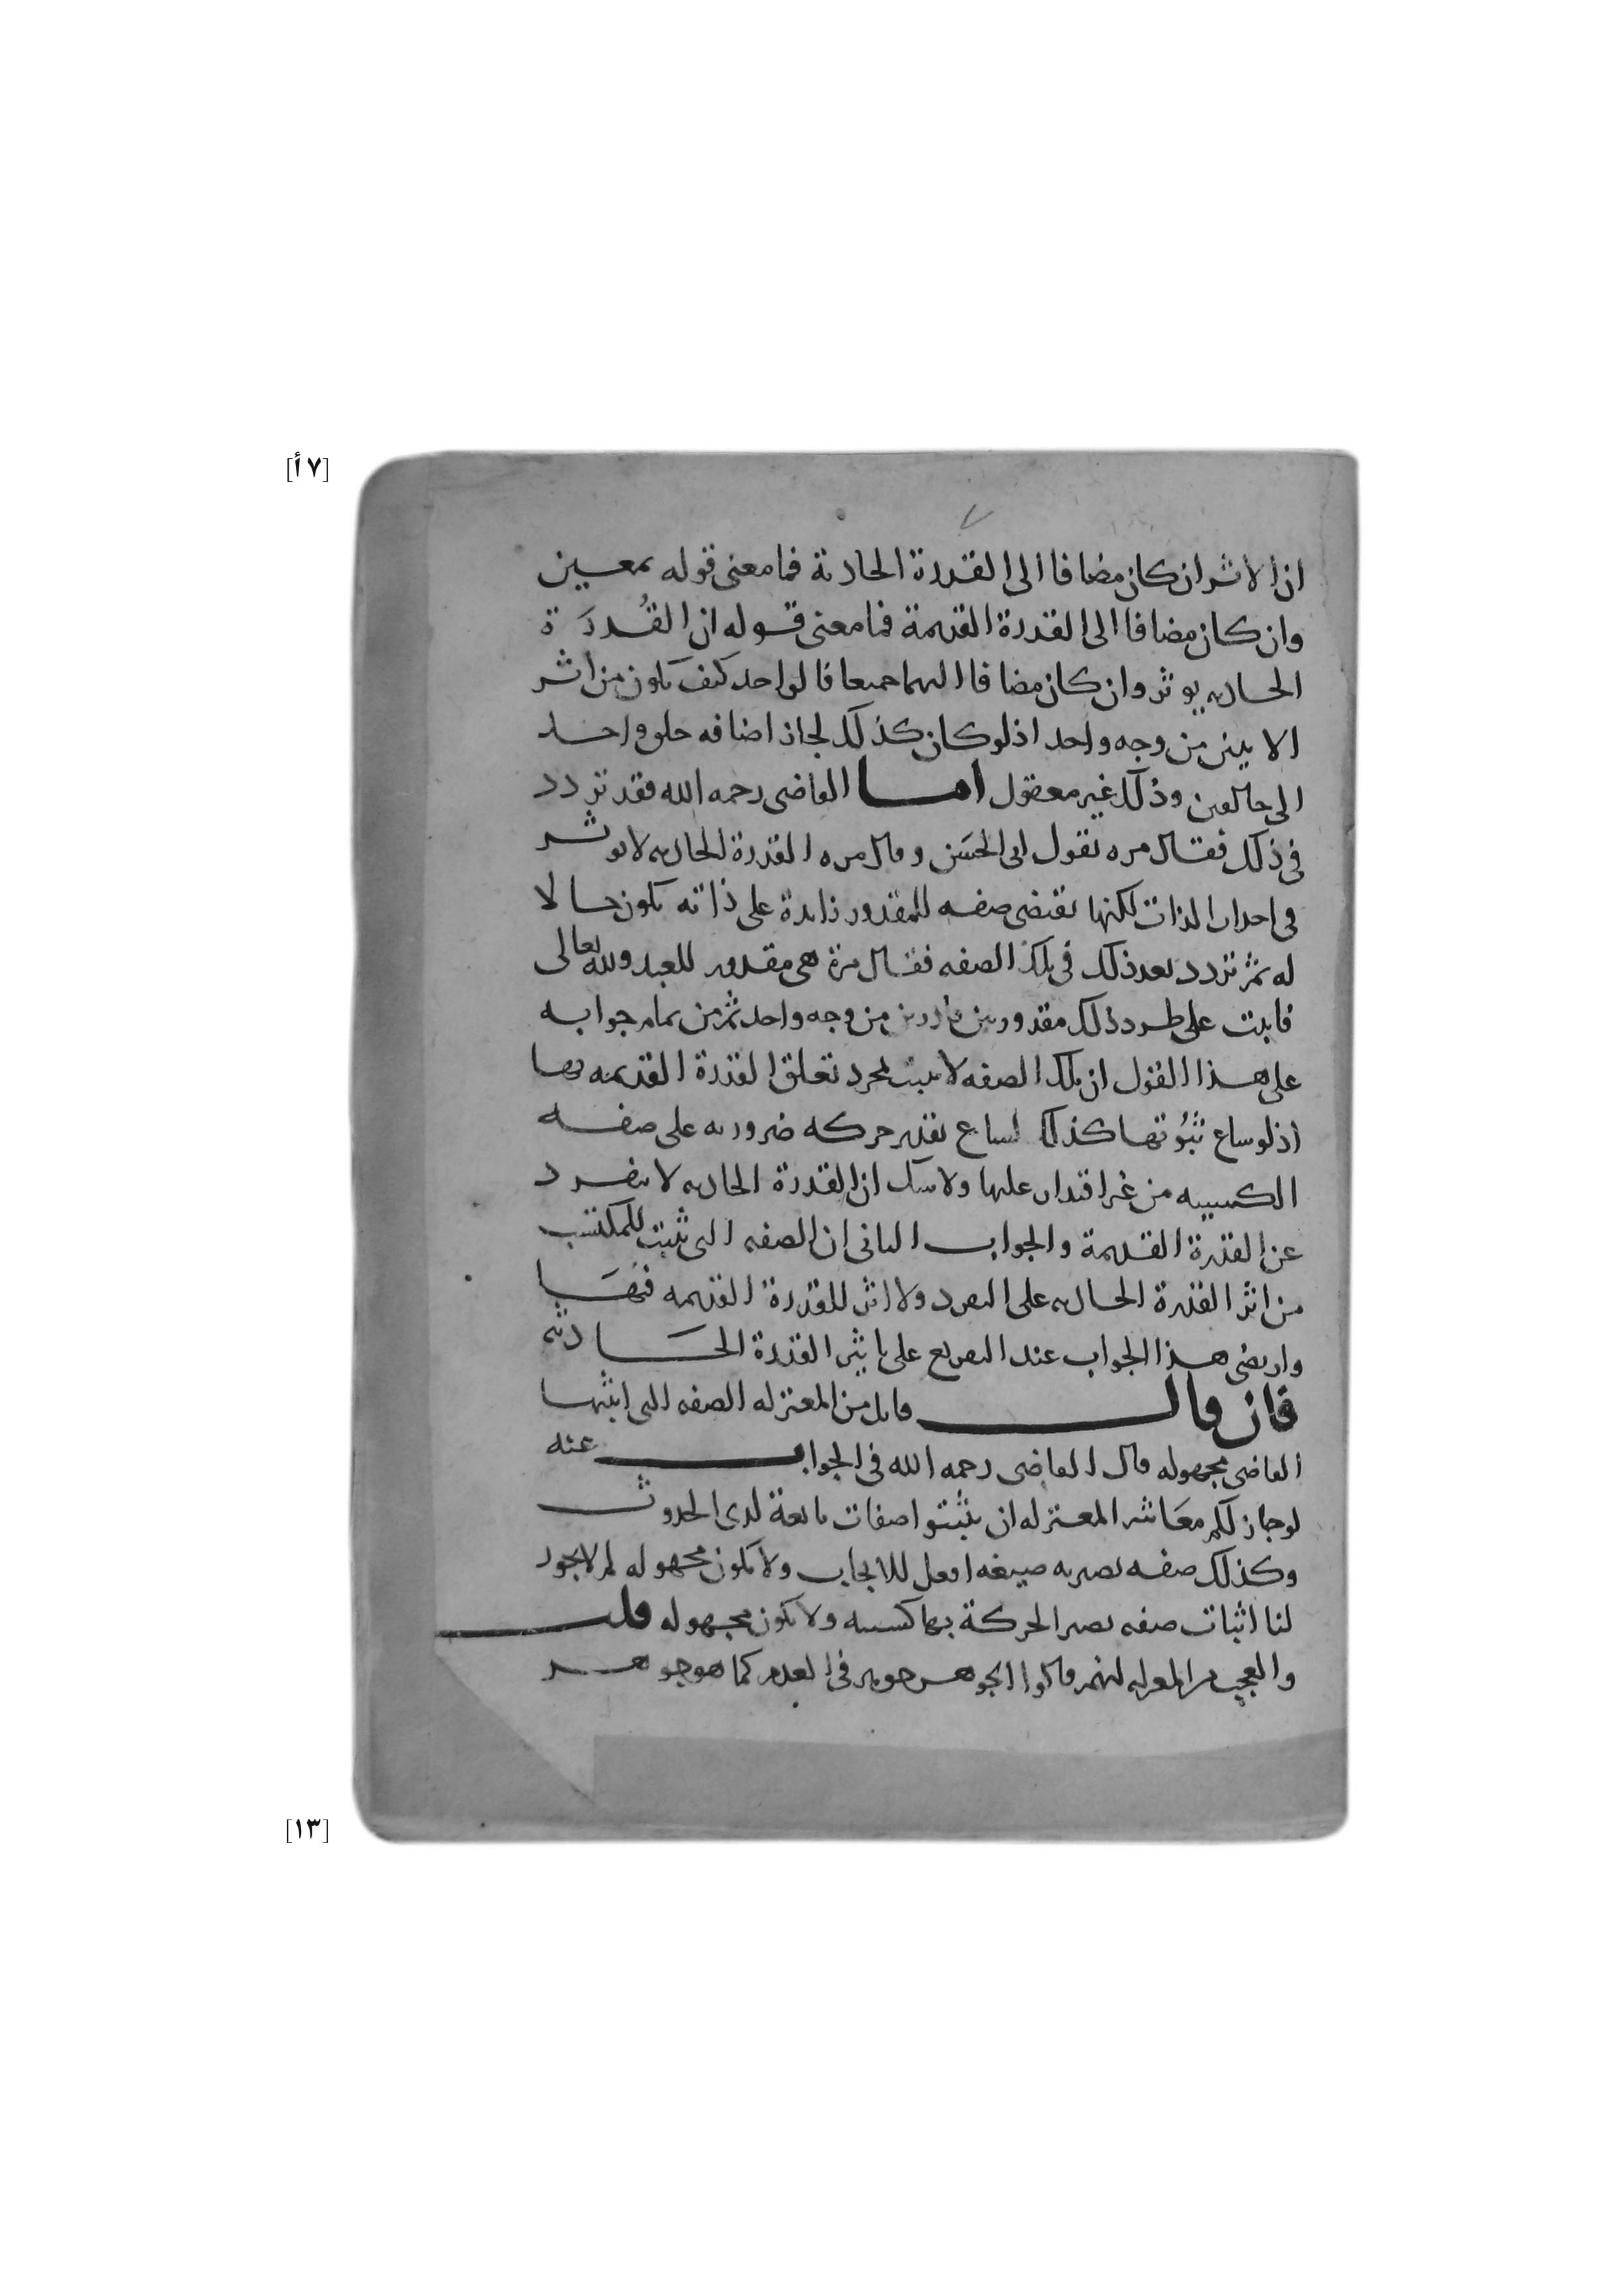 [٧ أ]
٧
ان الاثر ان كان مضافا الى القدرة الحادثة فما معنى قوله بمعين
وان كان مضافا الى القدرة القديمة فما معنى قوله ان القُدرَة
الحادثه يوثر وان كان مضافا اليهما جميعا فالواحد كيف يكون من اثر
الاثنين من وجه واحد اذ لو كان كذلك لجاز اضافه خلق واحد
الى خالقين وذلك غير معقول اما القاضى رحمه الله فقد تردد
فى ذلك فقال مره بقول ابى الحسَن وقال مره القدرة الحادثه لا توثر
فى احداث الذات لكنها تقتضى صفه للمقدور زايدة على ذاته تكون حالا
له ثم تردد بعد ذلك فى تلك الصفه فقال مرة هى مقدور للعبد ولله تعالى
فاثبت على طرد ذلك مقدور بين قادرين من وجه واحد ثم من تمام جوابه
على هذا القول ان تلك الصفه لا تثبت بمجرد تعلق القدرة القديمه بها
اذ لو ساغ ثبُوتها كذلك لساغ تقدير حركه ضروريه على صفه
الكسبيه من غير اقتدار عليها ولا شك ان القدرة الحادثه لا تنفرد
عن القدرة القديمة والجواب الثانى ان الصفه التى تثبت للمكتسب
من اثر القدرة الحادثه على التفرد ولا اثر للقدرة القديمه فيهَا
وارتضى هذا الجواب عند التفريع على تاثير القدرة الحَادثه
فان قال قايل من المعتزله الصفه التى اثبتها
القاضى مجهوله قال القاضى رحمه الله فى الجواب عنه
لو جاز لكم معَاشر المعتزله ان تثبتوا صفات تابعة لدى الحدوث
وكذلك صفه تصير به صيغه افعل للايجاب ولا تكون مجهوله لم لا يجوز
لنا اثبات صفه تصير الحركة بها كسبيه ولا تكون مجهوله قلت
والعجب من المعتزله انهم قالوا الجوهر جوهر فى العدم كما هو جوهر
[١٣]